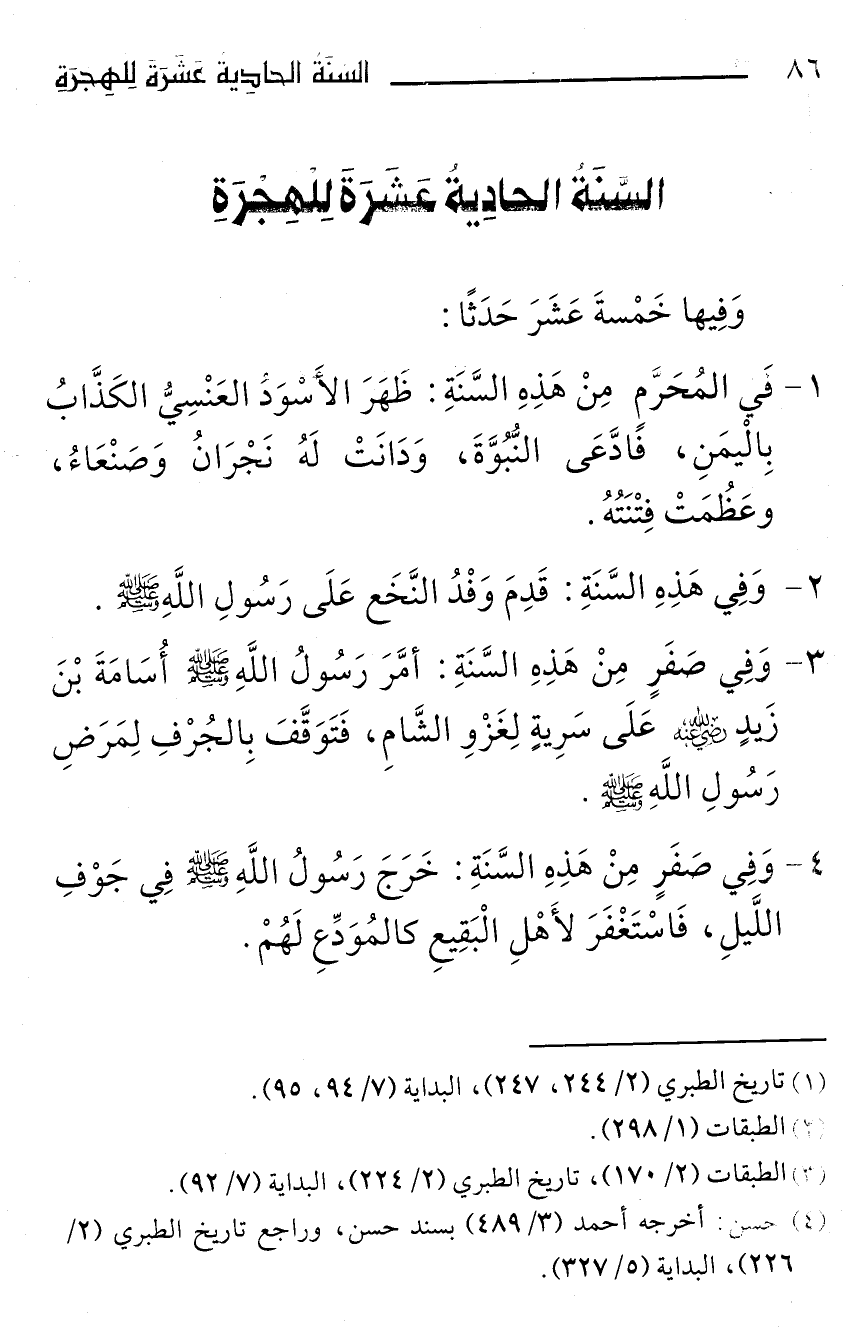 ٨٦ السَّنَةُ الحادِيةُ عَشَرَةَ لِلهِجرَةِ
السَّنَةُ الحادِيةُ عَشَرَةَ لِلْهِجْرَةِ
وَفِيها خَمْسةَ عَشَرَ حَدَثًا :
١- فَي المُحَرَّمِ مِنْ هَذِهِ السَّنَةِ : ظَهَرَ الأَسْوَدُ العَنْسِيُّ الكَذَّابُ
بِالْيمَنِ، فَادَّعَى النُّبُوَّةَ، وَدَانَتْ لَهُ نَجْرَانُ وَصَنْعَاءُ،
وعَظُمَتْ فِتْنَتُهُ.
٢- وَفِي هَذِهِ السَّنَةِ : قَدِمَ وَفْدُ النَّخَعِ عَلَى رَسُولِ اللَّهِ ﷺ .
٣- وَفِي صَفَرٍ مِنْ هَذِهِ السَّنَةِ : أمَّرَ رَسُولُ اللَّهِ ﷺ أُسَامَةَ بْنَ
زَيدٍ رضي الله عنه عَلَى سَرِيةٍ لِغَزْوِ الشَّامِ، فَتَوَقَّفَ بِالجُرْفِ لِمَرَضِ
رَسُولِ اللَّهِ ﷺ .
٤- وَفِي صَفَرٍ مِنْ هَذِهِ السَّنَةِ : خَرَجَ رَسُولُ اللَّهِ ﷺ فِي جَوْفِ
اللَّيلِ، فَاسْتَغْفَرَ لأَهْلِ الْبَقِيعِ كالمُوَدِّعِ لَهُمْ.
(١) تاريخ الطبري (٢/ ٢٤٤، ٢٤٧)، البداية (٧/ ٩٤، ٩٥).
(٢) الطبقات (١/ ٢٩٨).
(٣) الطبقات (٢/ ١٧٠)، تاريخ الطبري (٢/ ٢٢٤)، البداية (٧/ ٩٢).
(٤) حسن: أخرجه أحمد (٣/ ٤٨٩) بسند حسن، وراجع تاريخ الطبري (٢/
٢٢٦)، البداية (٥/ ٣٢٧).